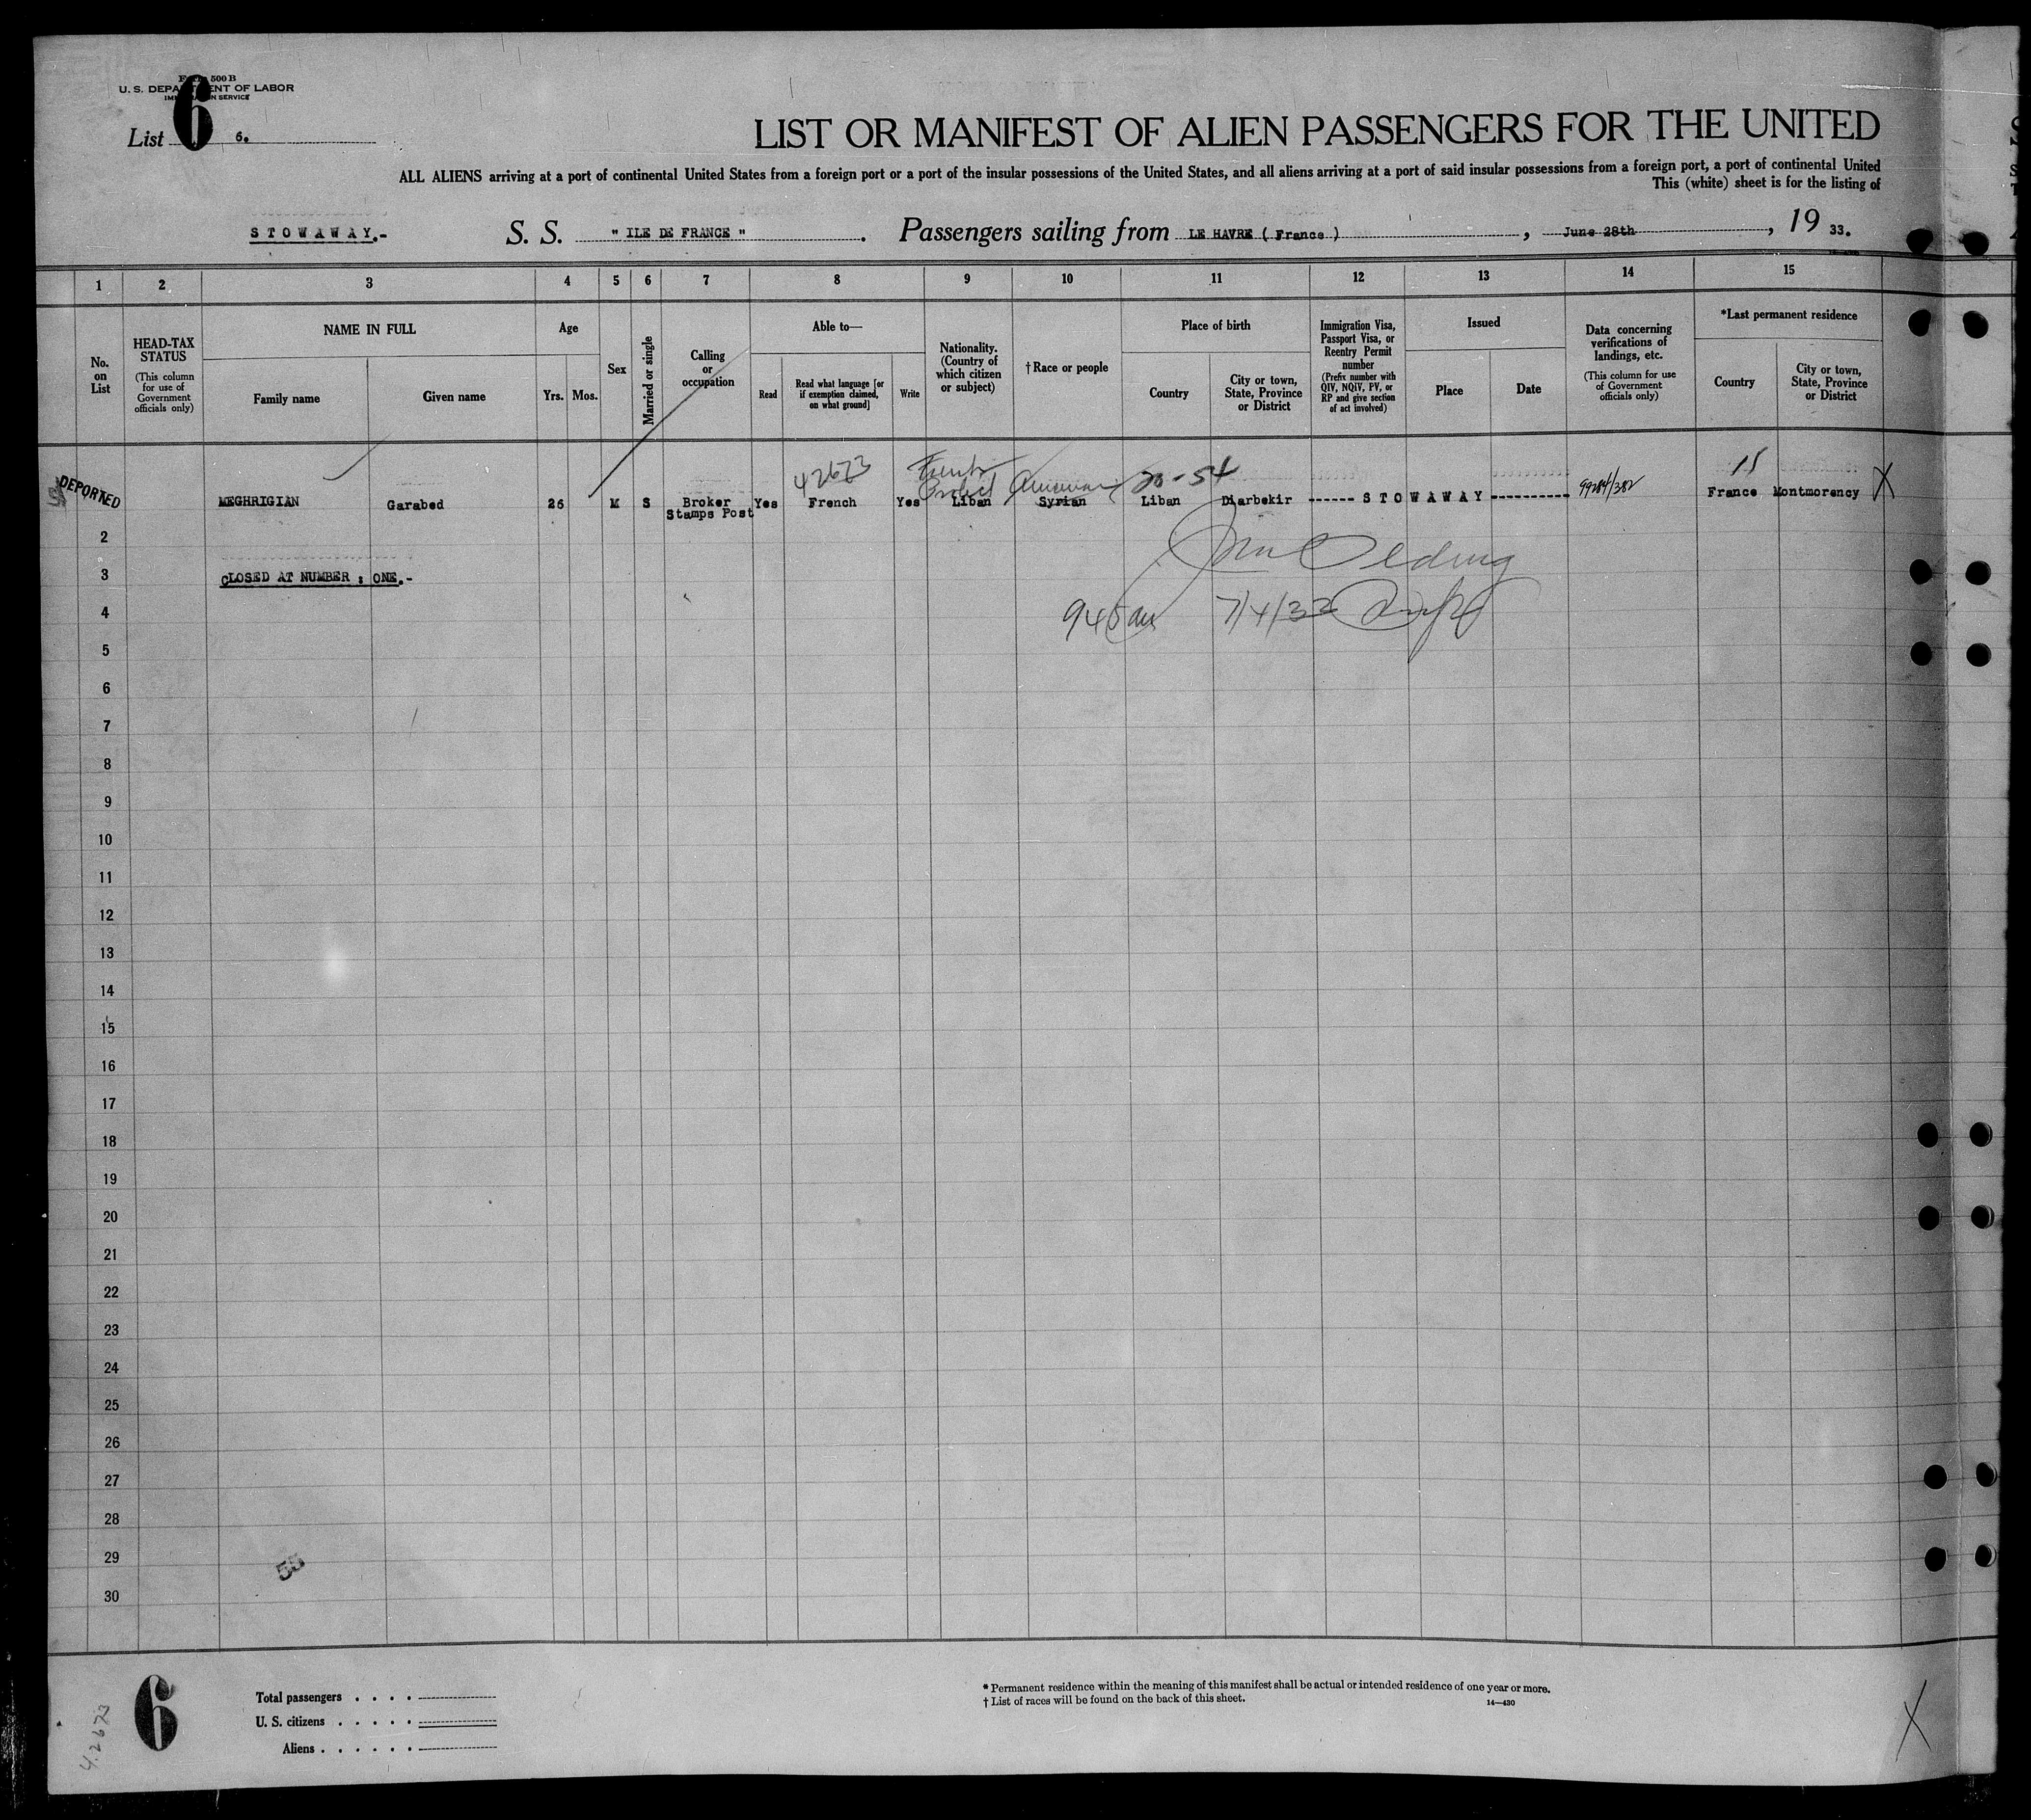 Form 500 B
U. S. DEPARTMENT OF LABOR
IMMIGRATION SERVICE
6
List 6.
LIST OR MANIFEST OF ALIEN PASSENGERS FOR THE UNITED
ALL ALIENS arriving at a port of continental United States from a foreign port or a port of the insular possessions of the United States, and all aliens arriving at a port of said insular possessions from a foreign port, a port of continental United
This (white) sheet is for the listing of
STOWAWAY.- S. S. " ILE DE FRANCE " . Passengers sailing from LE HAVRE ( France ) , June 28th , 19 33.
1 2 3 4 5 6 7 8 9 10 11 12 13 14 15
No. on List
HEAD-TAX STATUS (This column for use of Government officials only)
NAME IN FULL
Family name Given name
Age
Yrs. Mos.
Sex
Married or single
Calling or occupation
Able to—
Read Read what language [or if exemption claimed, on what ground] Write
Nationality. (Country of which citizen or subject)
† Race or people
Place of birth
Country City or town, State, Province or District
Immigration Visa, Passport Visa, or Reentry Permit number (Prefix number with QIV, NQIV, PV, or RP and give section of act involved)
Issued
Place Date
Data concerning verifications of landings, etc. (This column for use of Government officials only)
*Last permanent residence
Country City or town, State, Province or District
42673 French 20-54 15
DEPORTED MEGHRIGIAN Garabed 26 M S Broker Yes French Yes Liban Syrian Liban Diarbekir ------ STOWAWAY ---------- 99284/382 France Montmorency X
Stamps Post
2
3 CLOSED AT NUMBER : ONE.-
4 945 am 7/4/33
5
6
7
8
9
10
11
12
13
14
15
16
17
18
19
20
21
22
23
24
25
26
27
28
29 55
30
6
42673
Total passengers . . . .
U. S. citizens . . . . .
Aliens . . . . . .
* Permanent residence within the meaning of this manifest shall be actual or intended residence of one year or more.
† List of races will be found on the back of this sheet. 14—430
X